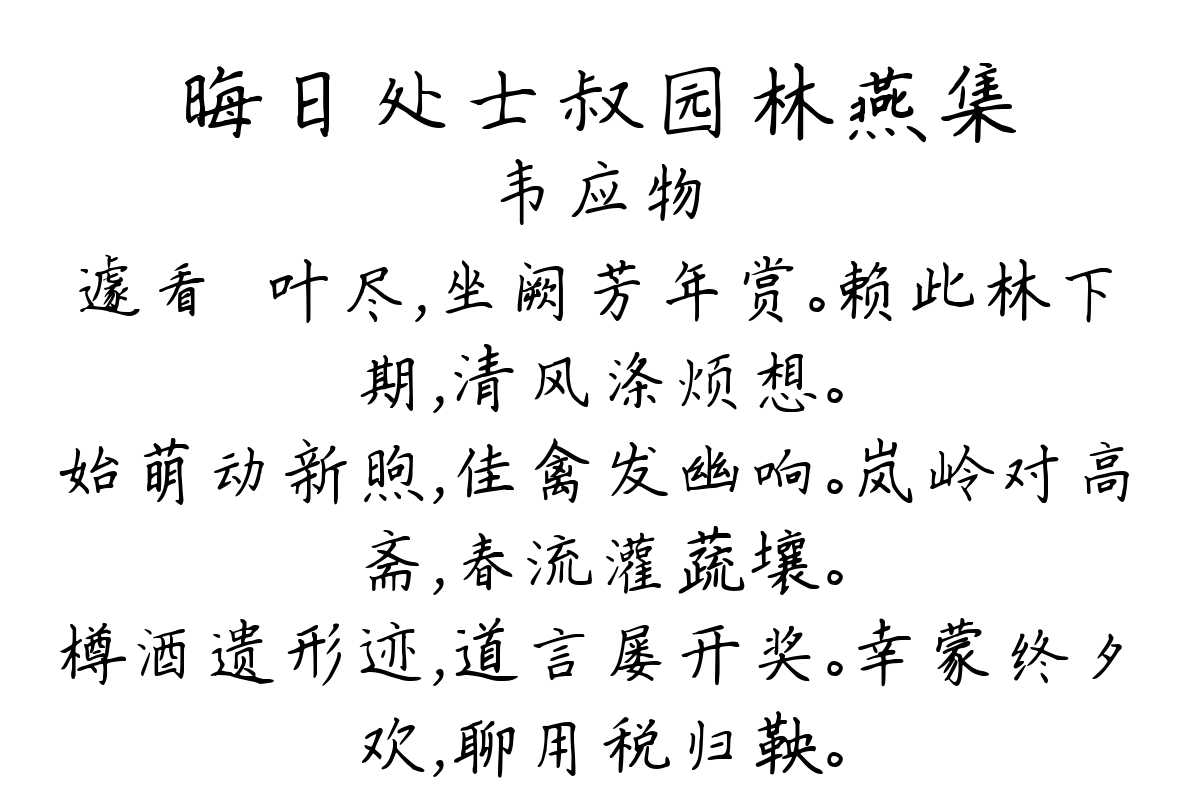 晦日处士叔园林燕集
韦应物
遽看 叶尽,坐阙芳年赏。赖此林下
期,清风涤烦想。
始萌动新煦,佳禽发幽响。岚岭对高
斋,春流灌蔬壤。
樽酒遗形迹,道言屡开奖。幸蒙终夕
欢,聊用税归鞅。